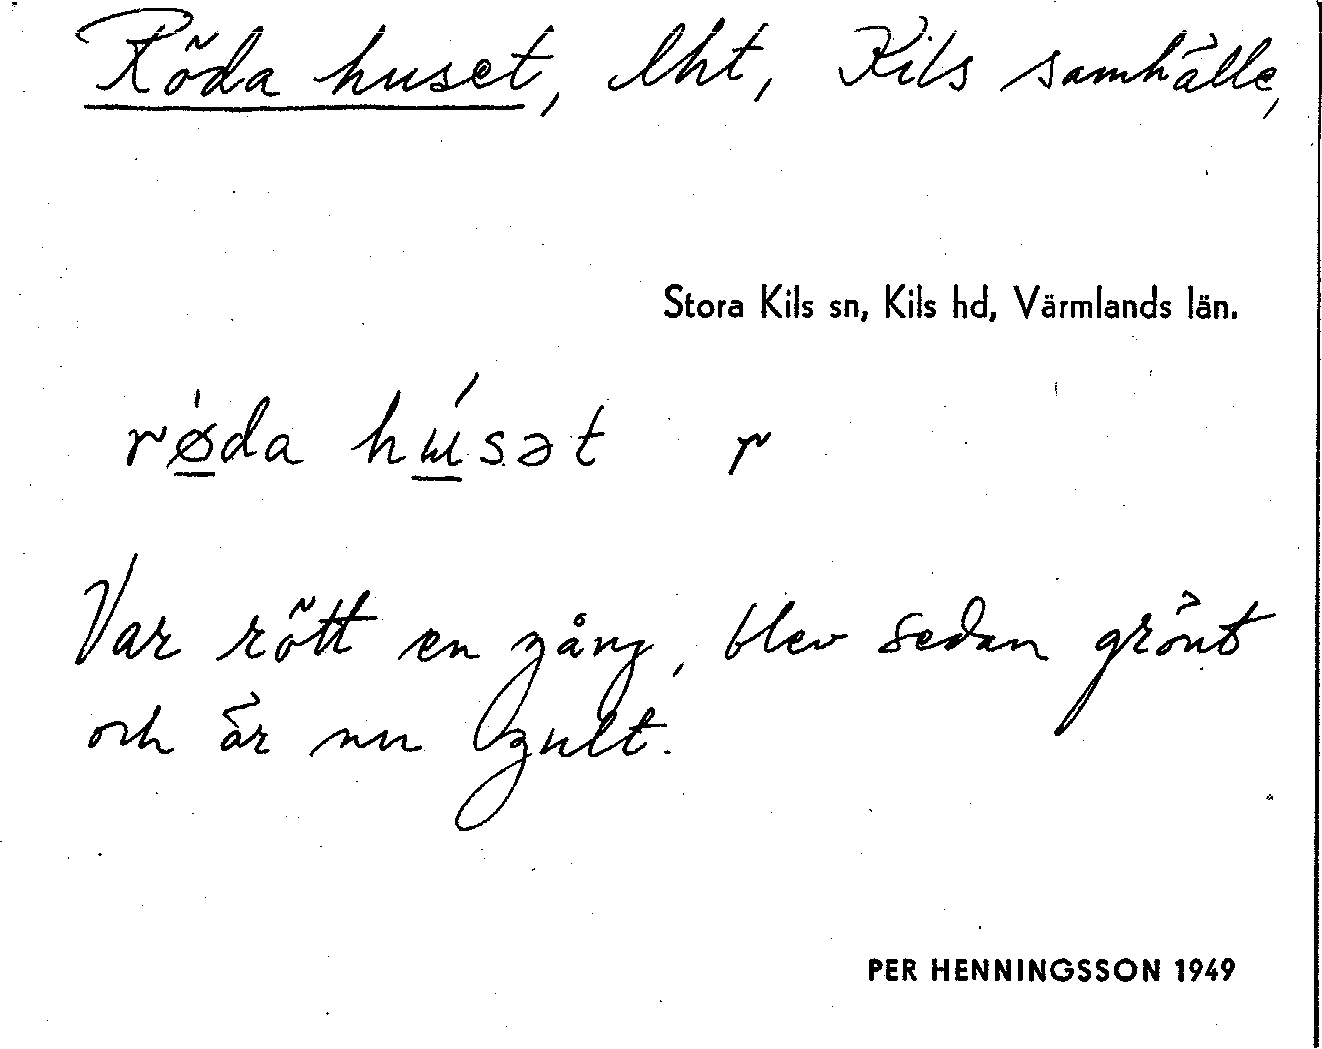 Röda huset, lht, Kils samhälle,
Stora Kils sn, Kils hd, Värmlands län.
rø̱̀da hɯ̱́sət r
Var rött en gång, blev sedan grönt
och är nu gult.
PER HENNINGSSON 1949